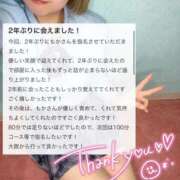 2年ぶりに会えました！
今回、2年ぶりにもかさんを指名させていただき
ました！
優しい笑顔で迎えてくれて、2年ぶりに会えたの
で部屋に入った後もずっと話が止まらないほど盛
り上がりました！
2年前に会ったこともしっかり覚えててくれてす
ごく嬉しかったです！
その後は、もかさんが優しく責めて、くれて気持
ちよくしてくれたのですごく良かったです！
80分では足りないほどでしたので、次回は100分
コース等で指名したいです！
大阪から行って良かったです！
Thank you♡